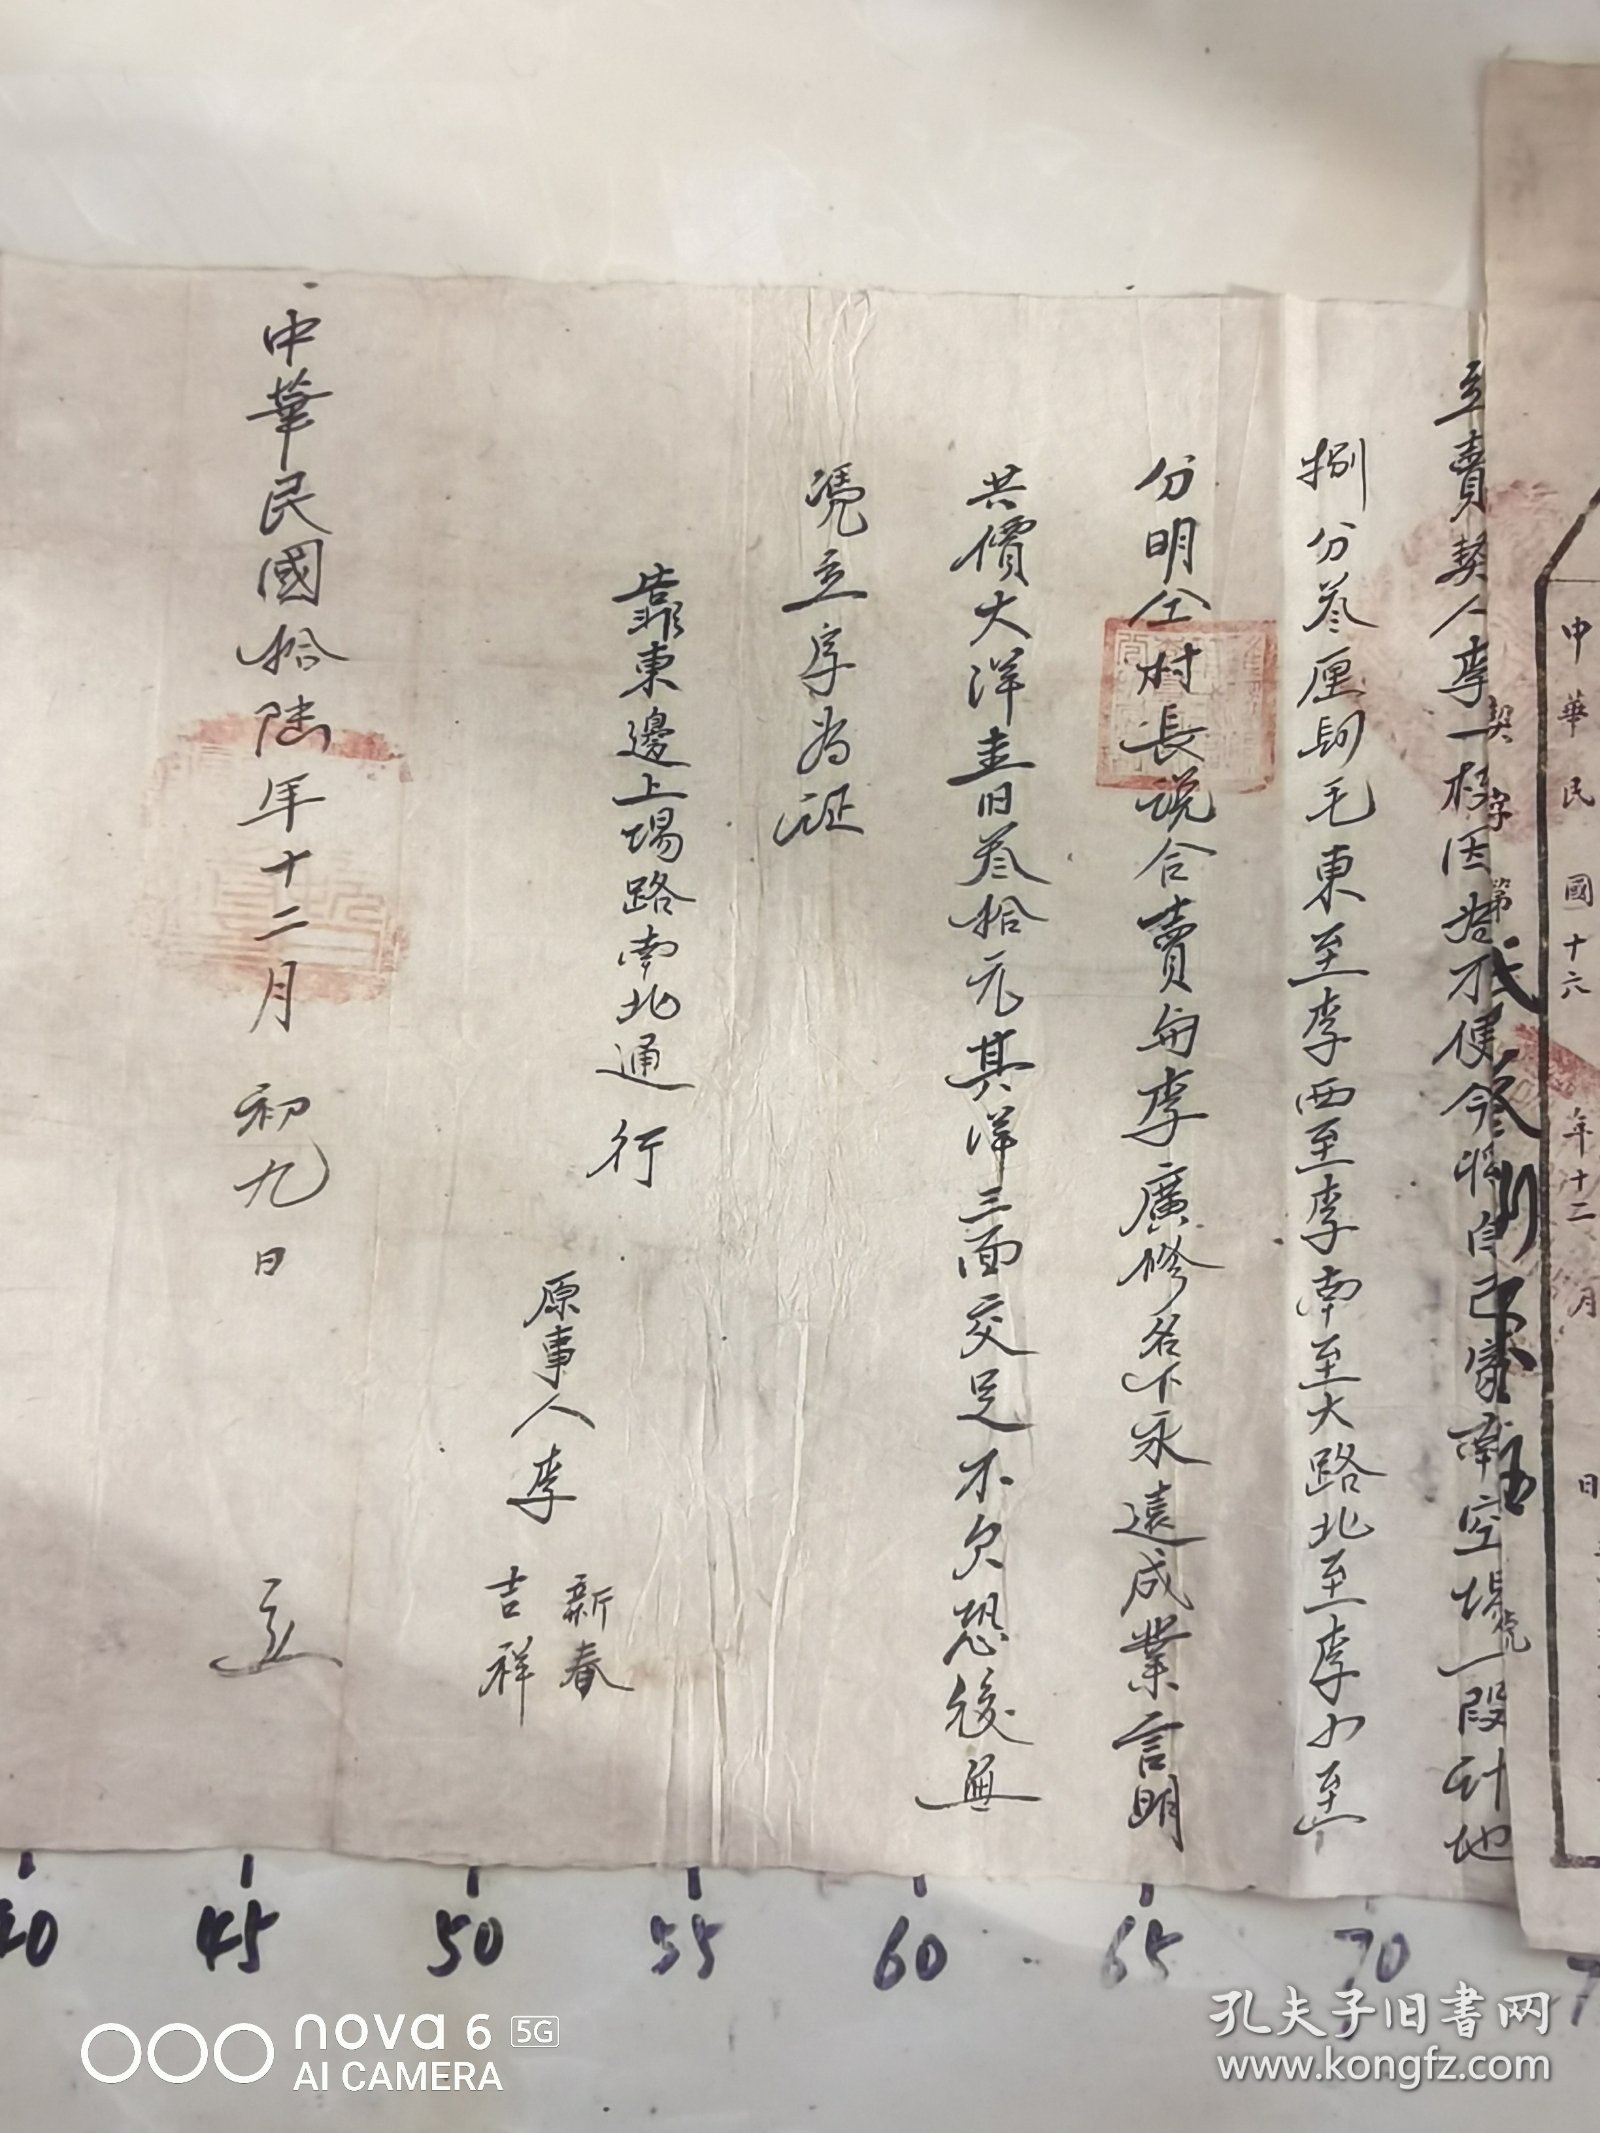 中華民國十六年十二月日
契字第號
立賣契人李一楼因為不便今將自己家南空場一段計地
捌分叁厘毛東至李西至李南至大路北至李四至
分明仝村長说合賣與李廣修名下永遠成業言明
共價大洋壹百叁拾元其洋三面交足不欠恐後無
凴立字為証
靠東邊上場路南北通行
原事人李
新春
吉祥
中華民國拾陆年十二月初九日立
40 45 50 55 60 65 70
nova 6 5G
AI CAMERA
孔夫子旧书网
www.kongfz.com